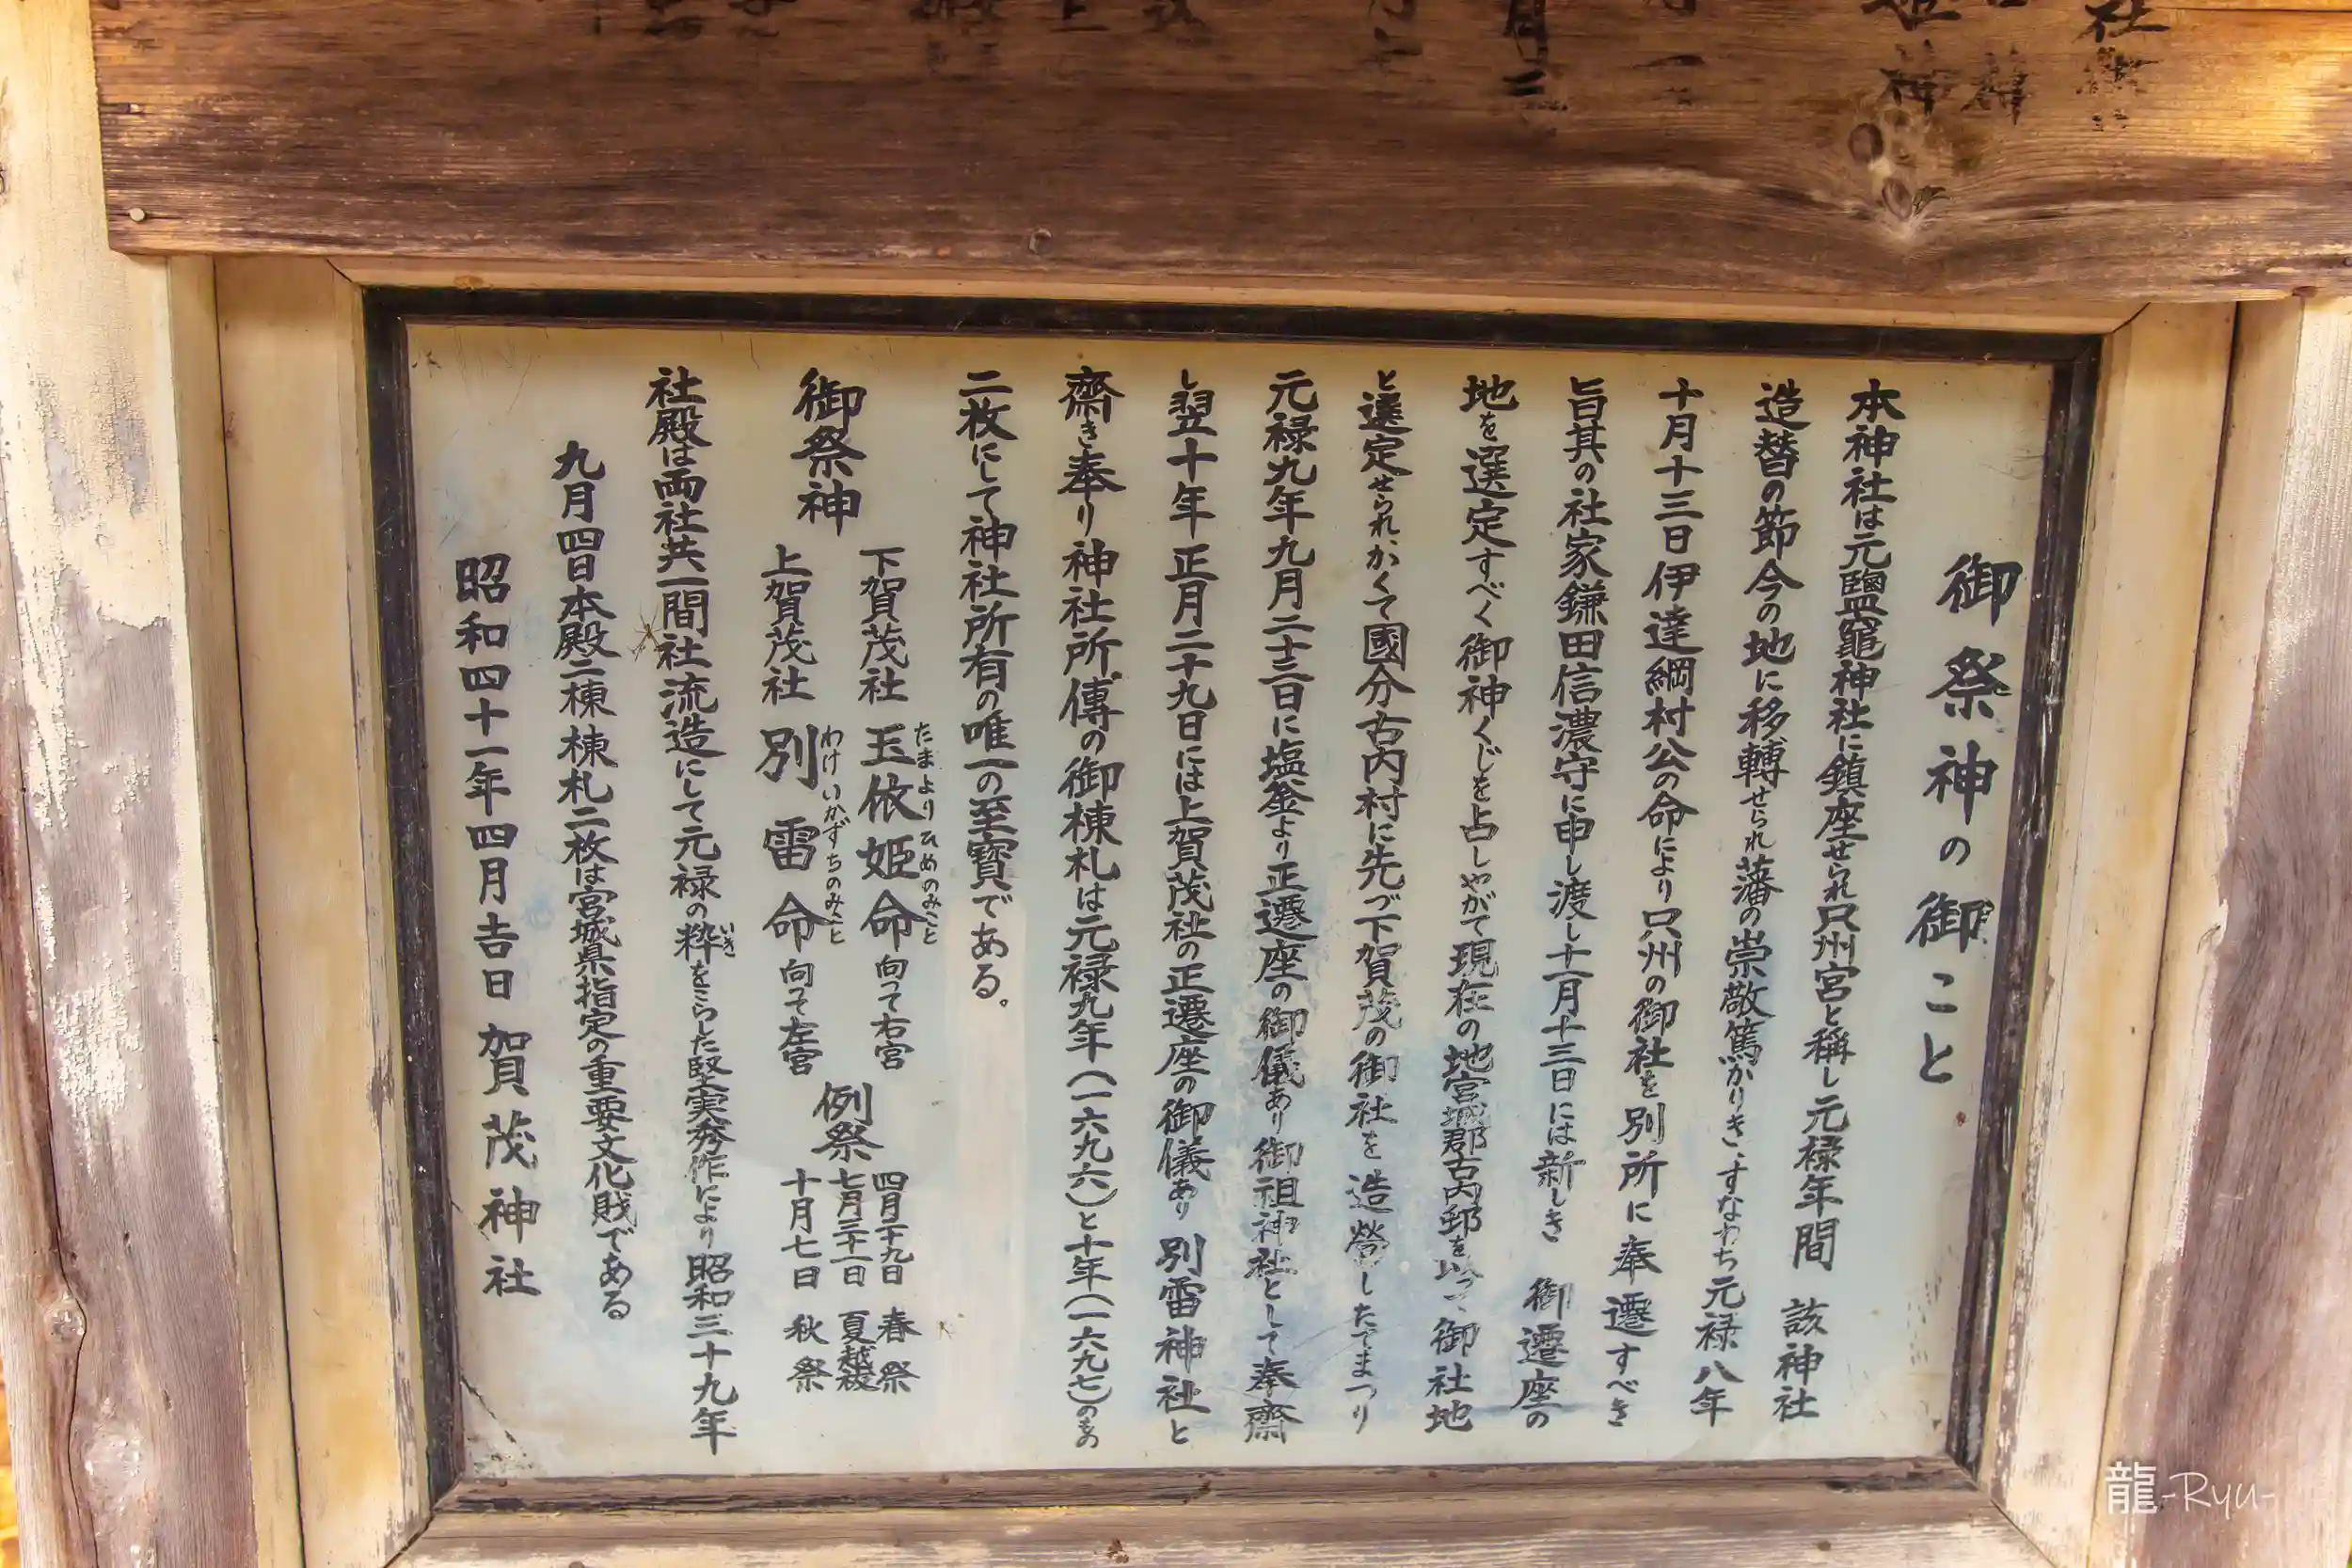 御祭神の御こと
本神社は元鹽竈神社に鎮座せられ只州宮と稱し元禄年間 該神社
造替の節今の地に移轉せられ藩の崇敬篤かりき、すなわち元禄八年
十月十三日伊達綱村公の命により只州の御社を別所に奉遷すべき
旨其の社家鎌田信濃守に申し渡し十一月十三日には新しき 御遷座の
地を選定すべく御神くじを占しやがて現在の地宮城郡古内邨を以って御社地
と選定せられかくて國分古内村に先づ下賀茂の御社を造營したてまつり
元禄九年九月二十三日に塩釜より正遷座の御儀あり御祖神社として奉齋
し翌十年正月二十九日には上賀茂社の正遷座の御儀あり別雷神社と
齋き奉り神社所傳の御棟札は元禄九年(一六九六)と十年(一六九七)のもの
二枚にして神社所有の唯一の至寶である。
御祭神
下賀茂社 玉依姫命 向って右宮
たまよりひめのみこと
上賀茂社 別雷命 向って左宮
わけいかずちのみこと
例祭
四月二十九日 春祭
七月三十一日 夏越祓
十月七日 秋祭
社殿は両社共一間社流造にして元禄の粋をこらした堅実秀作により昭和三十九年
いき
九月四日本殿二棟棟札二枚は宮城県指定の重要文化財である
昭和四十一年四月吉日 賀茂神社
龍-Ryu-